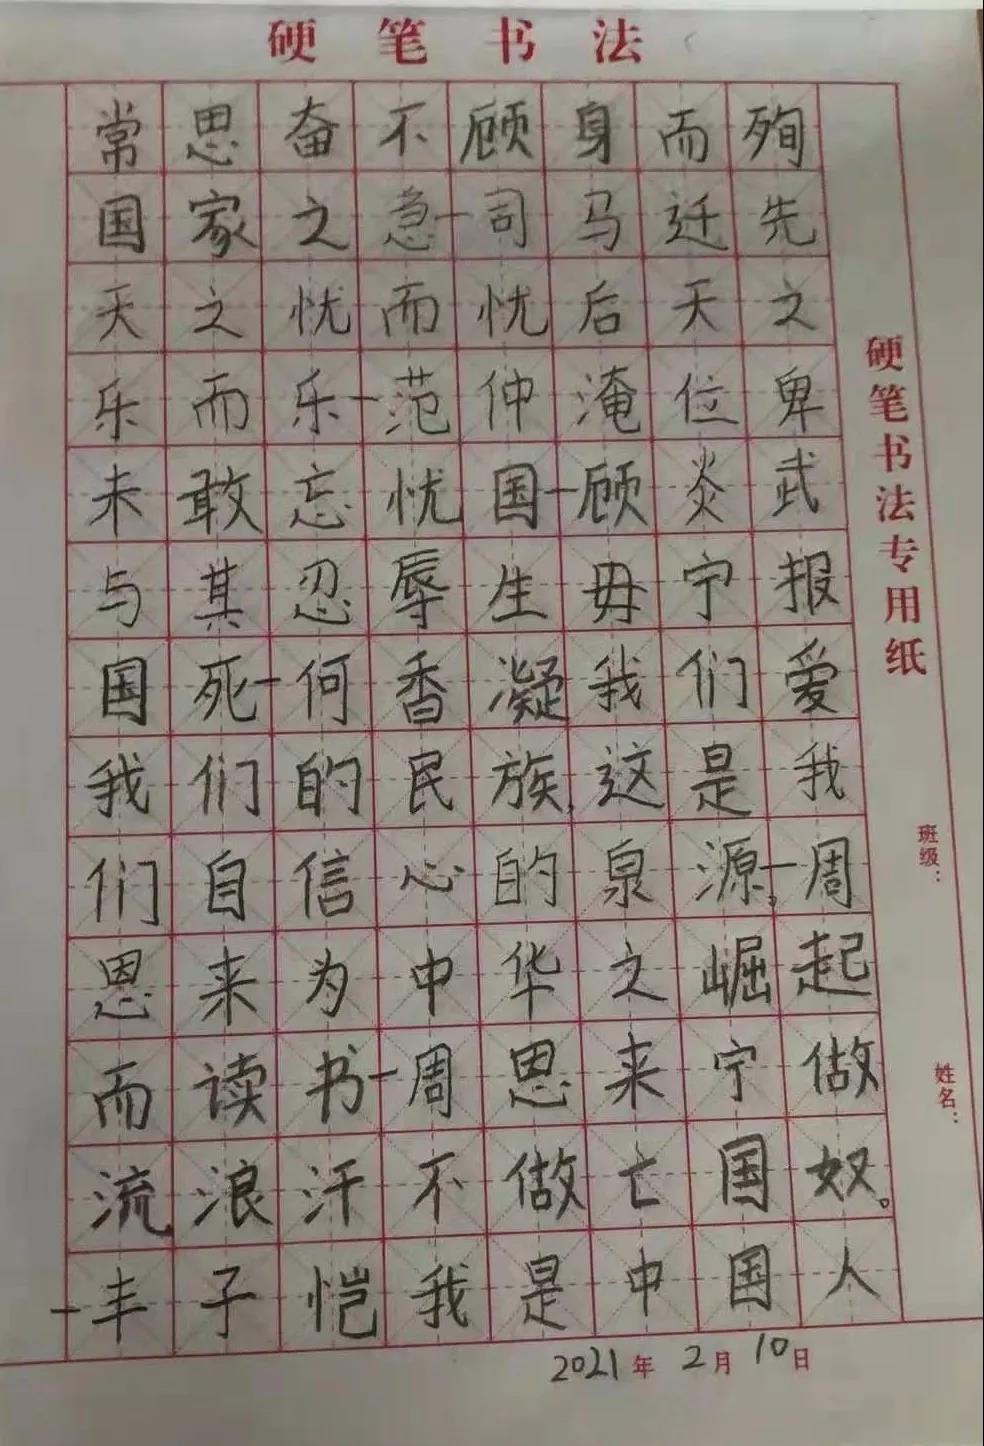 硬笔书法
常思奋不顾身而殉
国家之急—司马迁先
天之忧而忧后天之
乐而乐—范仲淹位卑
未敢忘忧国—顾炎武
与其忍辱生毋宁报
国死—何香凝我们爱
我们的民族,这是我
们自信心的泉源。—周
恩来为中华之崛起
而读书—周恩来宁做
流浪汗不做亡国奴。
—丰子恺我是中国人
2021年2月10日
硬笔书法专用纸
班级：
姓名：